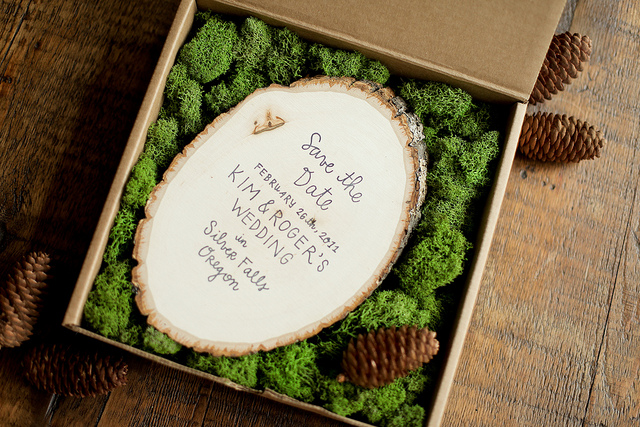 Save the
Date
FEBRUARY 26th, 2011
KIM & ROGER'S
WEDDING
in
Silver Falls
Oregon